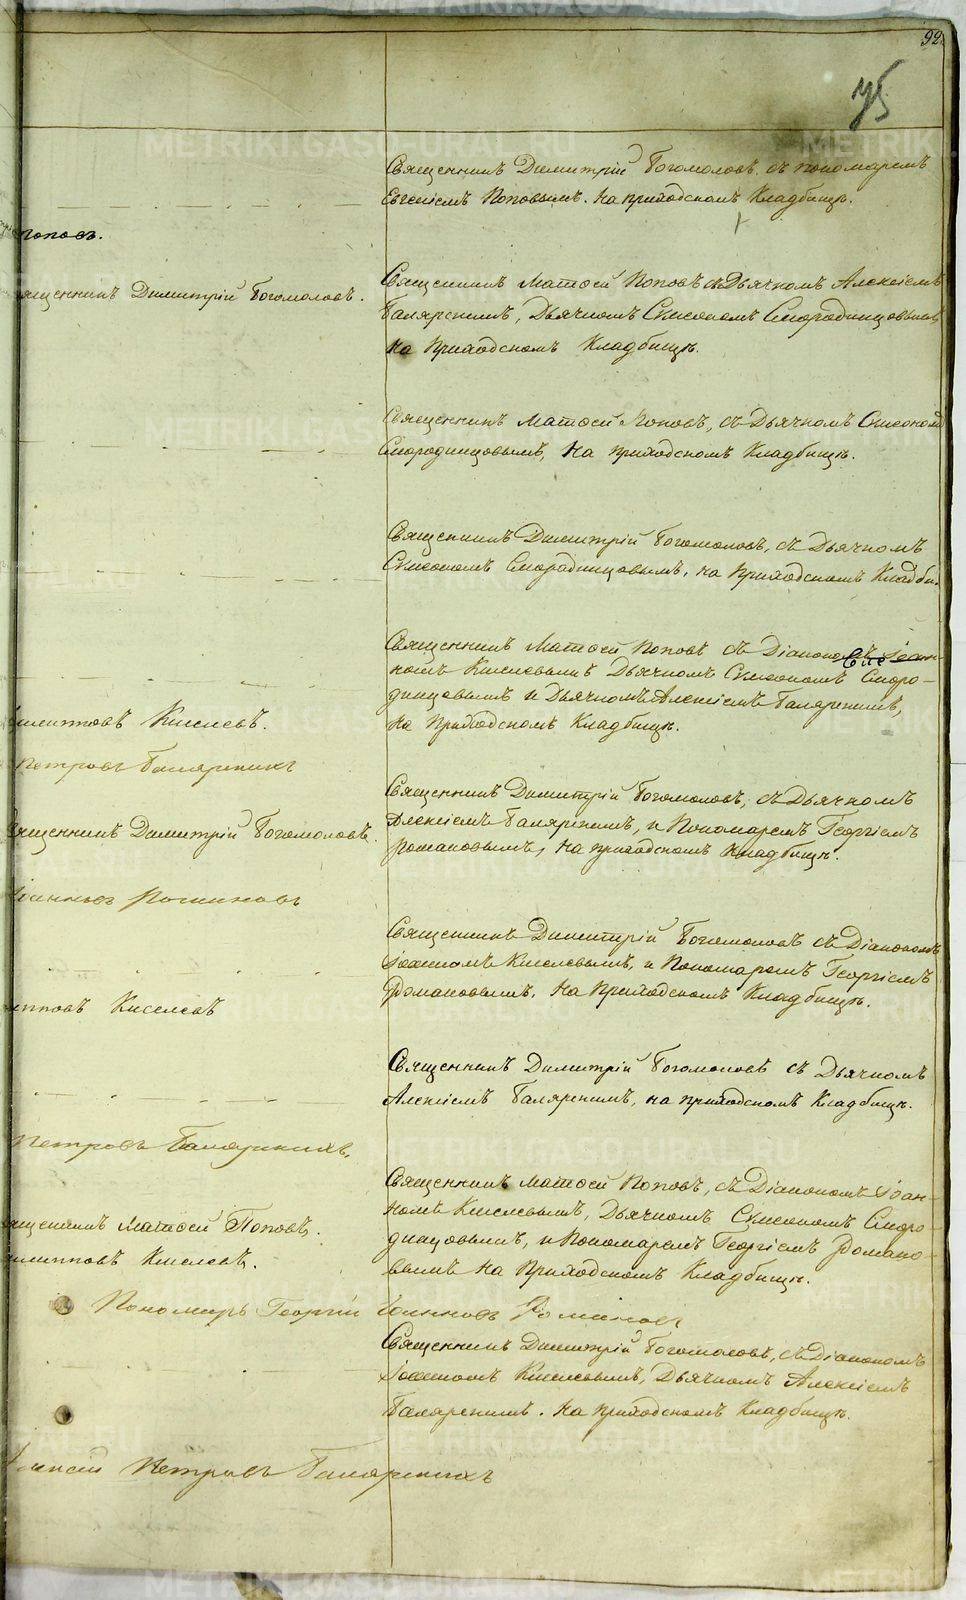 92
Священникъ Димитрій Богомоловъ, съ пономаремъ
Евгеніемъ Поповымъ. На приходскомъ Кладбищѣ.
Поповъ.
Священникъ Димитрій Богомоловъ.
Священникъ Матѳей Поповъ съ Дьячкомъ Алексіемъ
Дьячкомъ Симеономъ Смородинцовымъ
на Приходскомъ Кладбищѣ.
Священникъ Матѳей Поповъ, съ Дьячкомъ Симеономъ
Смородинцовымъ, На приходскомъ Кладбищѣ.
Священникъ Димитрій Богомоловъ, съ Дьячкомъ
Симеономъ Смородинцовымъ, на Приходскомъ Кладби.
Священникъ Матѳей Поповъ съ Діакономъ Іоан-
номъ Киселевымъ Дьячкомъ Симеономъ Сморо-
динцовымъ и Дьячкомъ Алексіемъ
на Приходскомъ Кладбищѣ.
Филипповъ Киселевъ.
Петровъ
Священникъ Димитрій Богомоловъ, съ Дьячкомъ
Алексіемъ и Пономаремъ Георгіемъ
Романовымъ, на приходскомъ Кладбищѣ.
Священникъ Димитрій Богомоловъ.
Іоанновъ Романовъ
Священникъ Димитрій Богомоловъ съ Діакономъ
Іоанномъ Киселевымъ, и Пономаремъ Георгіемъ
Романовымъ. На Приходскомъ Кладбищѣ.
липповъ Киселевъ
Священникъ Димитрій Богомоловъ съ Дьячкомъ
Алексіемъ на приходскомъ Кладбищѣ.
Петровъ
Священникъ Матѳей Поповъ, съ Діакономъ Іоан-
номъ Киселевымъ, Дьячкомъ Симеономъ Сморо-
динцовымъ, и Пономаремъ Георгіемъ Романо-
вымъ на Приходскомъ Кладбищѣ.
Священникъ Матѳей Поповъ.
илипповъ Киселевъ.
Пономарь Георгій Іоанновъ Романовъ
Священникъ Димитрій Богомоловъ, съ Діакономъ
Іоанномъ Киселевымъ, Дьячкомъ Алексіемъ
На приходскомъ Кладбищѣ.
Алексѣй Петровъ
METRIKI.GASO-URAL.RU